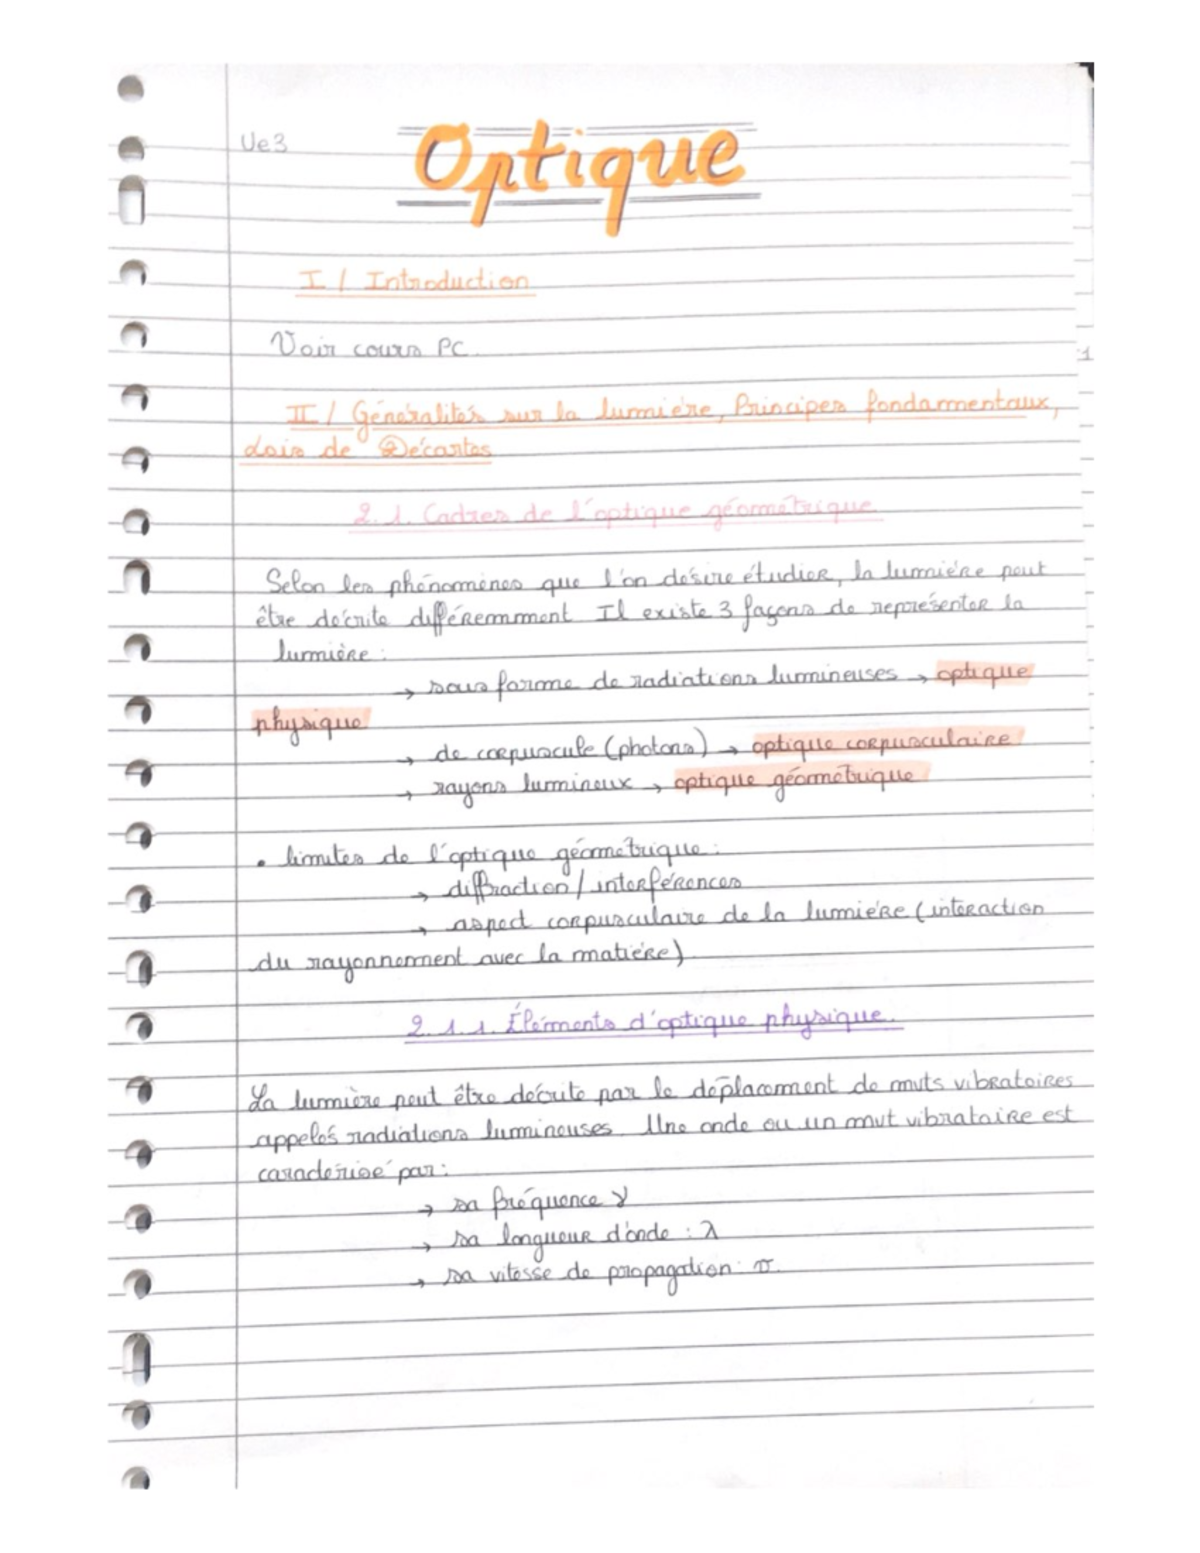 Ue3
Optique
I / Introduction
Voir cours PC.
1
II / Généralités sur la lumière, Principes fondamentaux,
Lois de Décartes
2.1. Cadres de l'optique géométrique
Selon les phénomènes que l'on désire étudier, la lumière peut
être décrite différemment Il existe 3 façons de représenter la
lumière :
→ sous forme de radiations lumineuses → optique
physique
→ de corpuscule (photons) → optique corpusculaire
→ rayons lumineux → optique géométrique
• limites de l'optique géométrique :
→ diffraction / interférences
→ aspect corpusculaire de la lumière (interaction
du rayonnement avec la matière)
2.1.1. Éléments d'optique physique.
La lumière peut être décrite par le déplacement de mvts vibratoires
appelés radiations lumineuses. Une onde ou un mvt vibratoire est
caractérisé par :
→ sa fréquence γ
→ sa longueur d'onde : λ
→ sa vitesse de propagation : v.